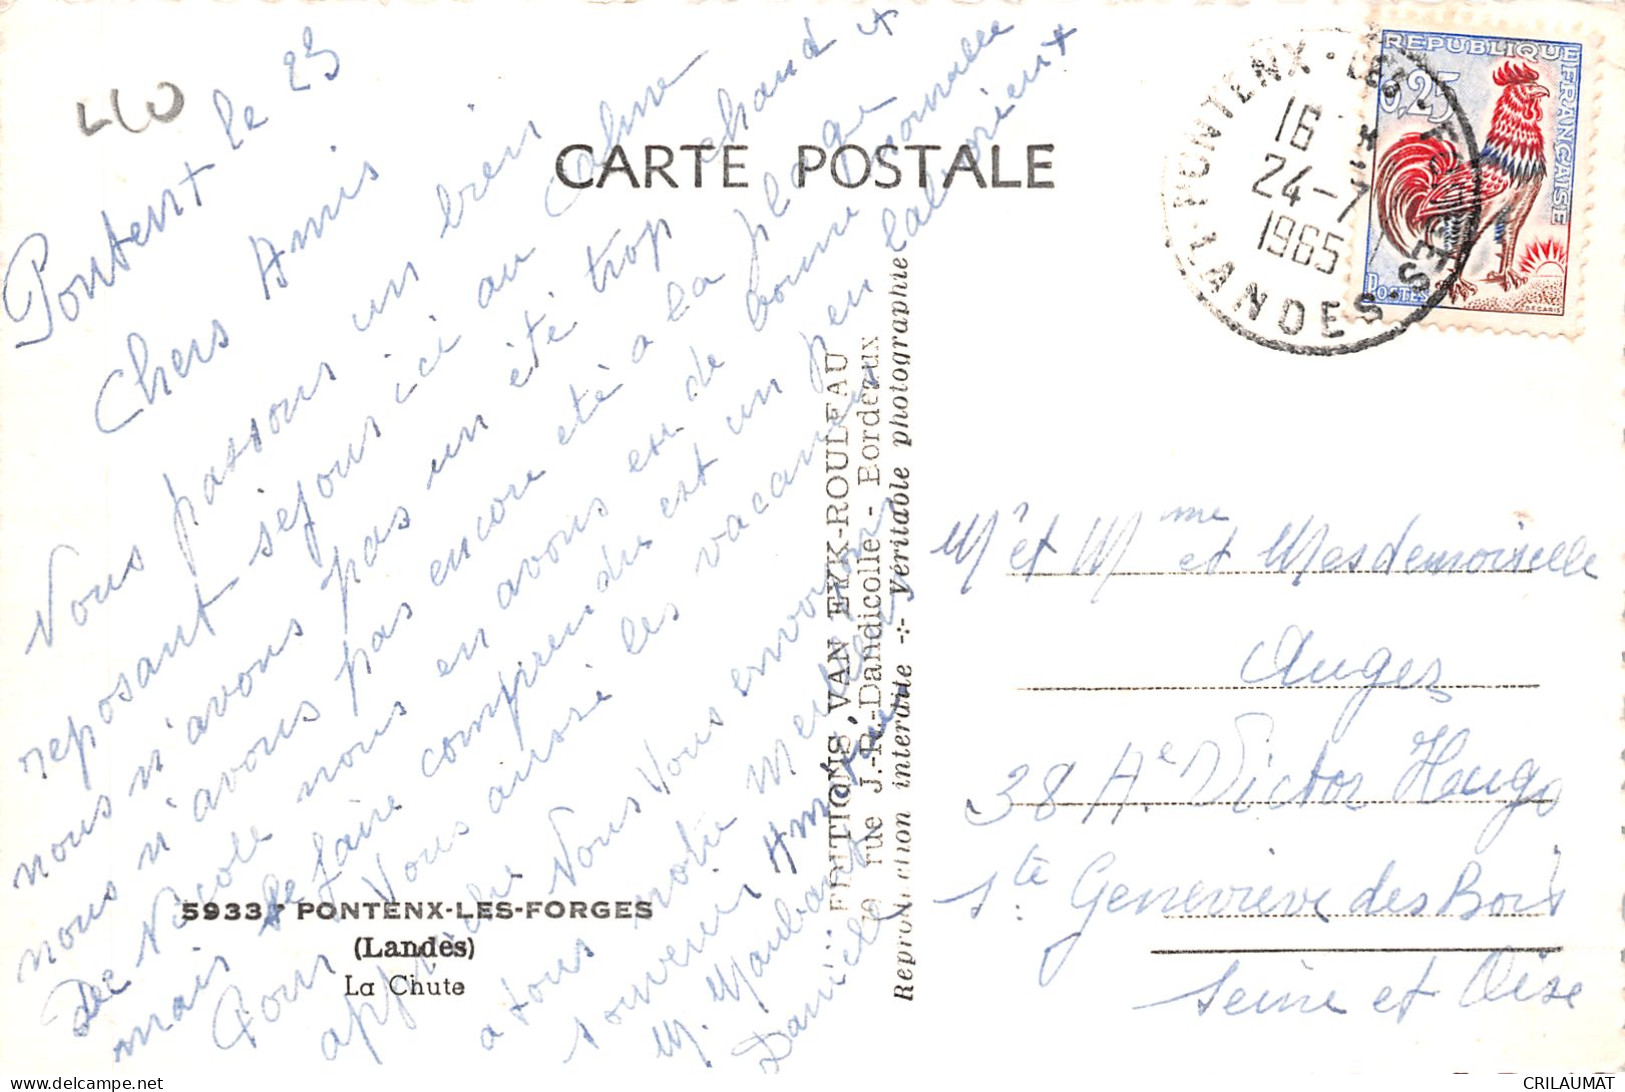 LIO
Pontenx le 23
Chers Amis
Nous passons un bien
reposant séjour ici au calme
nous n'avons pas un été trop chaud et
nous n'avons pas encore été à la plage
De Nicole nous en avons eu de bonne
mais de faire comprendre est un peu laborieux
Pour Vous aussi les vacances
approche Nous Vous envoyons
a tous notre Meilleur
souvenir Amical
M. Maubang
Danielle
5933 PONTENX-LES-FORGES
(Landes)
La Chute
CARTE POSTALE
EDITIONS VAN EYK-ROULEAU
rue J.-R.-Dandicolle - Bordeaux
Reproduction interdite -:- Véritable photographie
PONTENX-LES-FORGES
16
24-7
1965
LANDES
REPUBLIQUE FRANCAISE
0,25
POSTES
DECARIS
Mr et Mme et Mesdemoiselle
Auges
38 Ae Victor Hougo
Ste Geneviève des Bois
Seine et Oise
CRILAUMAT